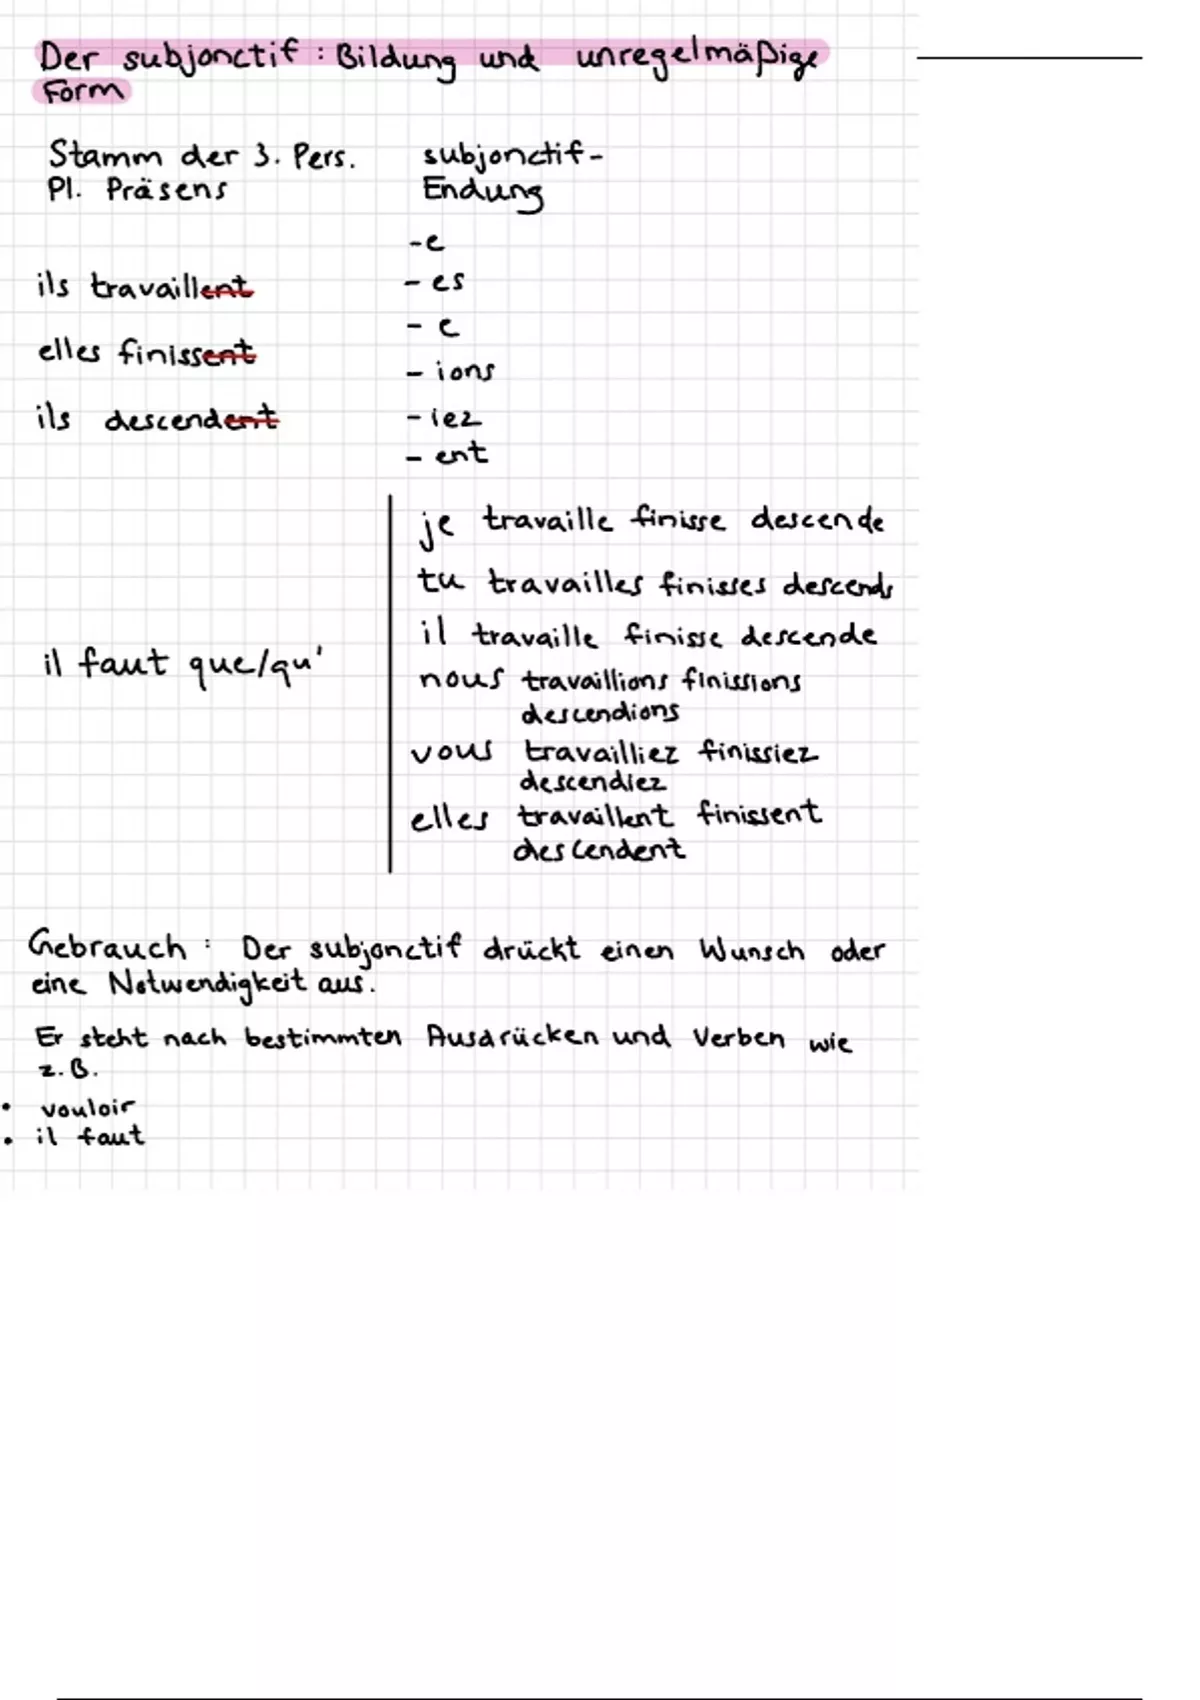 Der subjonctif : Bildung und unregelmäßige
Form
Stamm der 3. Pers.
Pl. Präsens
subjonctif-
Endung
-e
ils travaillent
- es
- e
elles finissent
- ions
ils descendent
- iez
- ent
je travaille finisse descende
tu travailles finisses descends
il travaille finisse descende
il faut que/qu'
nous travaillions finissions
descendions
vous travailliez finissiez
descendiez
elles travaillent finissent
descendent
Gebrauch : Der subjonctif drückt einen Wunsch oder
eine Notwendigkeit aus.
Er steht nach bestimmten Ausdrücken und Verben wie
z.B.
• vouloir
• il faut